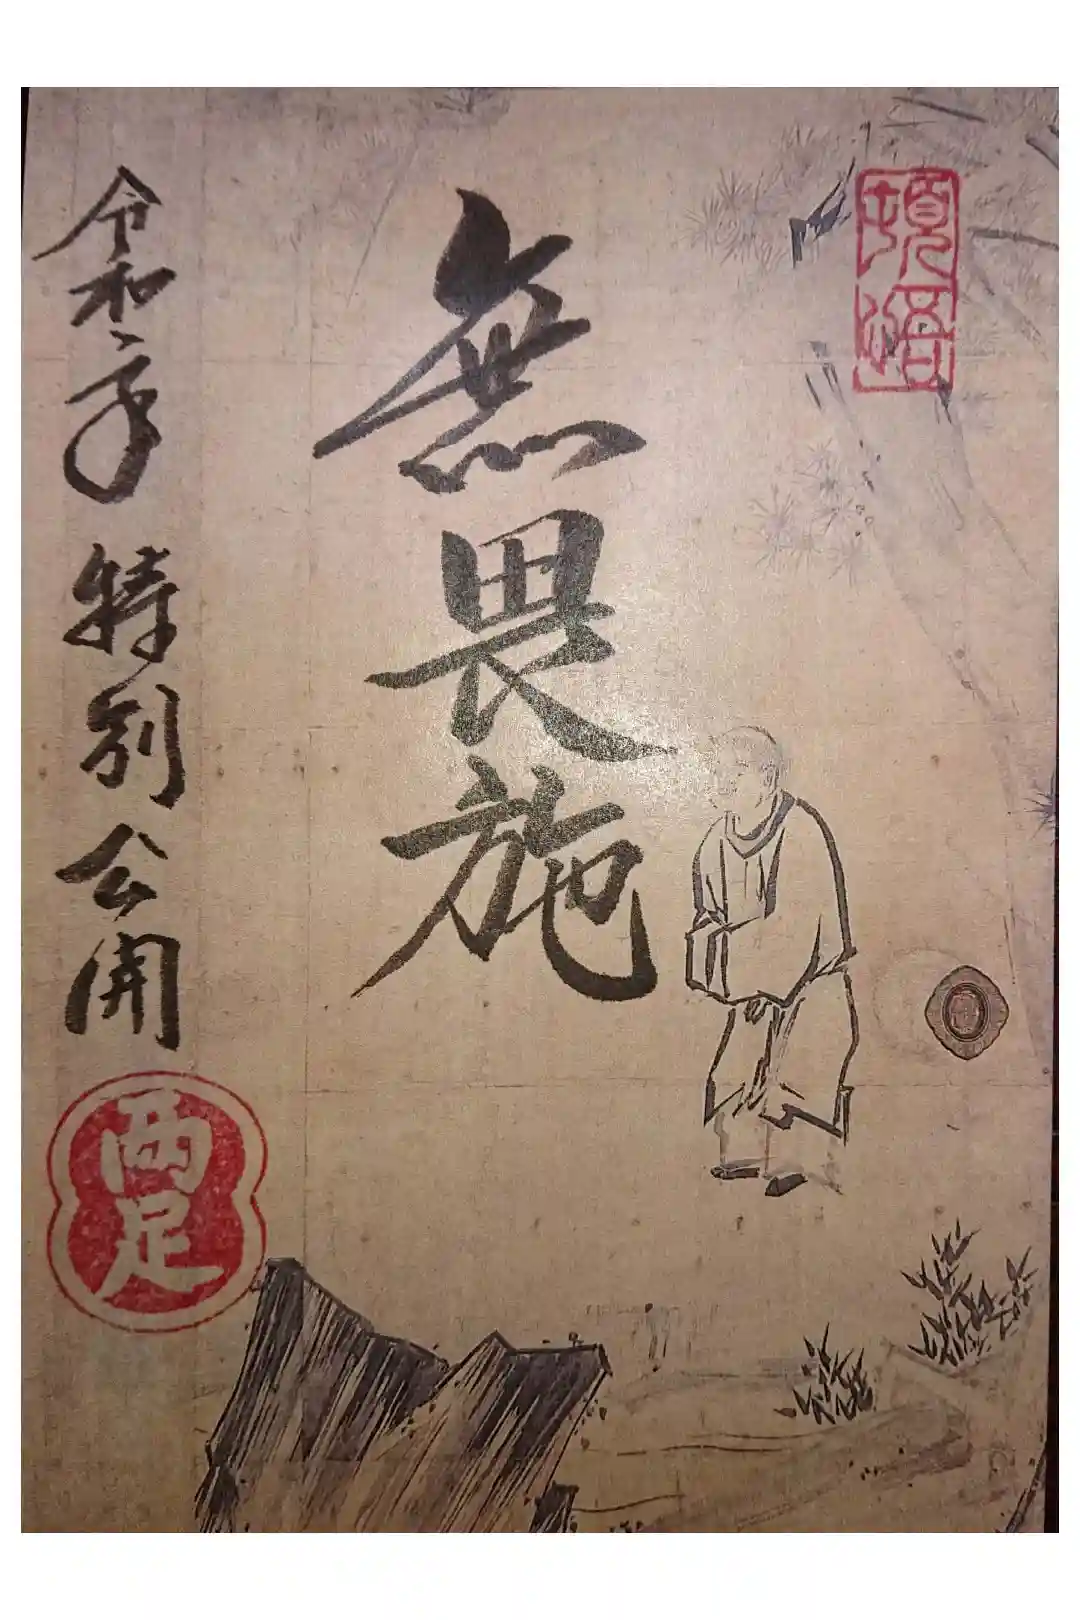 頓悟
無畏施
令和二年 特別公開
両足